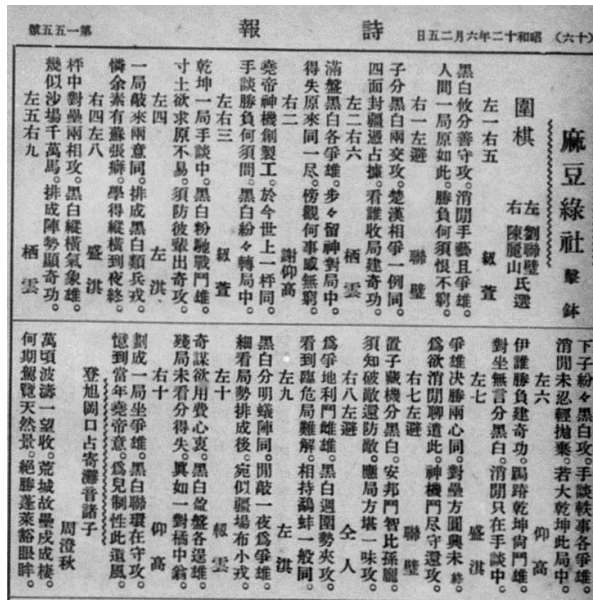 （十六） 昭和十二年六月二五日
詩報
第一五五號
麻豆綠社 擊鉢
圍棋 左 劉聯璧 右 陳麗山 氏選
左一右五 萱
黑白攸分善守攻。消閒手藝且爭雄。
人間一局原如此。勝負何須恨不窮。
右一左避 聯璧
子分黑白兩交攻。楚漢相爭一例同。
四面封疆憑占據。看誰收局建奇功。
左二右六 栖雲
滿盤黑白各爭雄。步々留神對局中。
得失原來同一尽。傍觀何事感無窮。
右二 謝仰高
堯帝神機創製工。於今世上一枰同。
手談勝負何須問。黑白紛々轉局中。
左右三 萱
乾坤一局手談中。黑白粉馳戰鬥雄。
寸土欲求原不易。須防彼輩出奇攻。
左四 左淇
一局敲來兩意同。排成黑白類兵戎。
憐余素有蘇張癖。學得縱橫到夜終。
右四左八 盛淇
枰中對壘兩相攻。黑白縱橫氣象雄。
幾似沙場千萬馬。排成陣勢顯奇功。
左五右九 栖雲
下子紛々黑白攻。手談軼事各爭雄。
消閒未忍輕拋棄。若大乾坤此局中。
左六 仰高
伊誰勝負建奇功。跼蹐乾坤尙鬥雄。
對坐無言分黑白。消閒只在手談中。
左七 盛淇
爭雄決勝兩心同。對壘方圓興未終。
爲欲消閒聊遣此。神機鬥尽守還攻。
右七左避 聯璧
置子藏機分黑白。安邦鬥智比孫龐。
須知破敵還防敵。應局方堪一味攻。
右八左避 仝人
爲爭地利鬥雌雄。黑白週圍勢夾攻。
看到臨危局難解。相持鷸蚌一般同。
左九 左淇
黑白分明蟻陣同。閒敲一夜爲爭雄。
細看局勢排成後。宛似疆場布小戎。
左十 雲
奇謀欲用費心衷。黑白盈盤各逞雄。
殘局未看分得失。眞如一對橘中翁。
右十 仰高
劃成一局坐爭雄。黑白聯環在守攻。
憶到當年堯帝意。爲兒制性此遺風。
登旭岡口占寄灘音諸子
周澄秋
萬頃波濤一望收。荒城故壘戍成樓。
何期駕覽天然景。絕勝蓬萊豁眼眸。